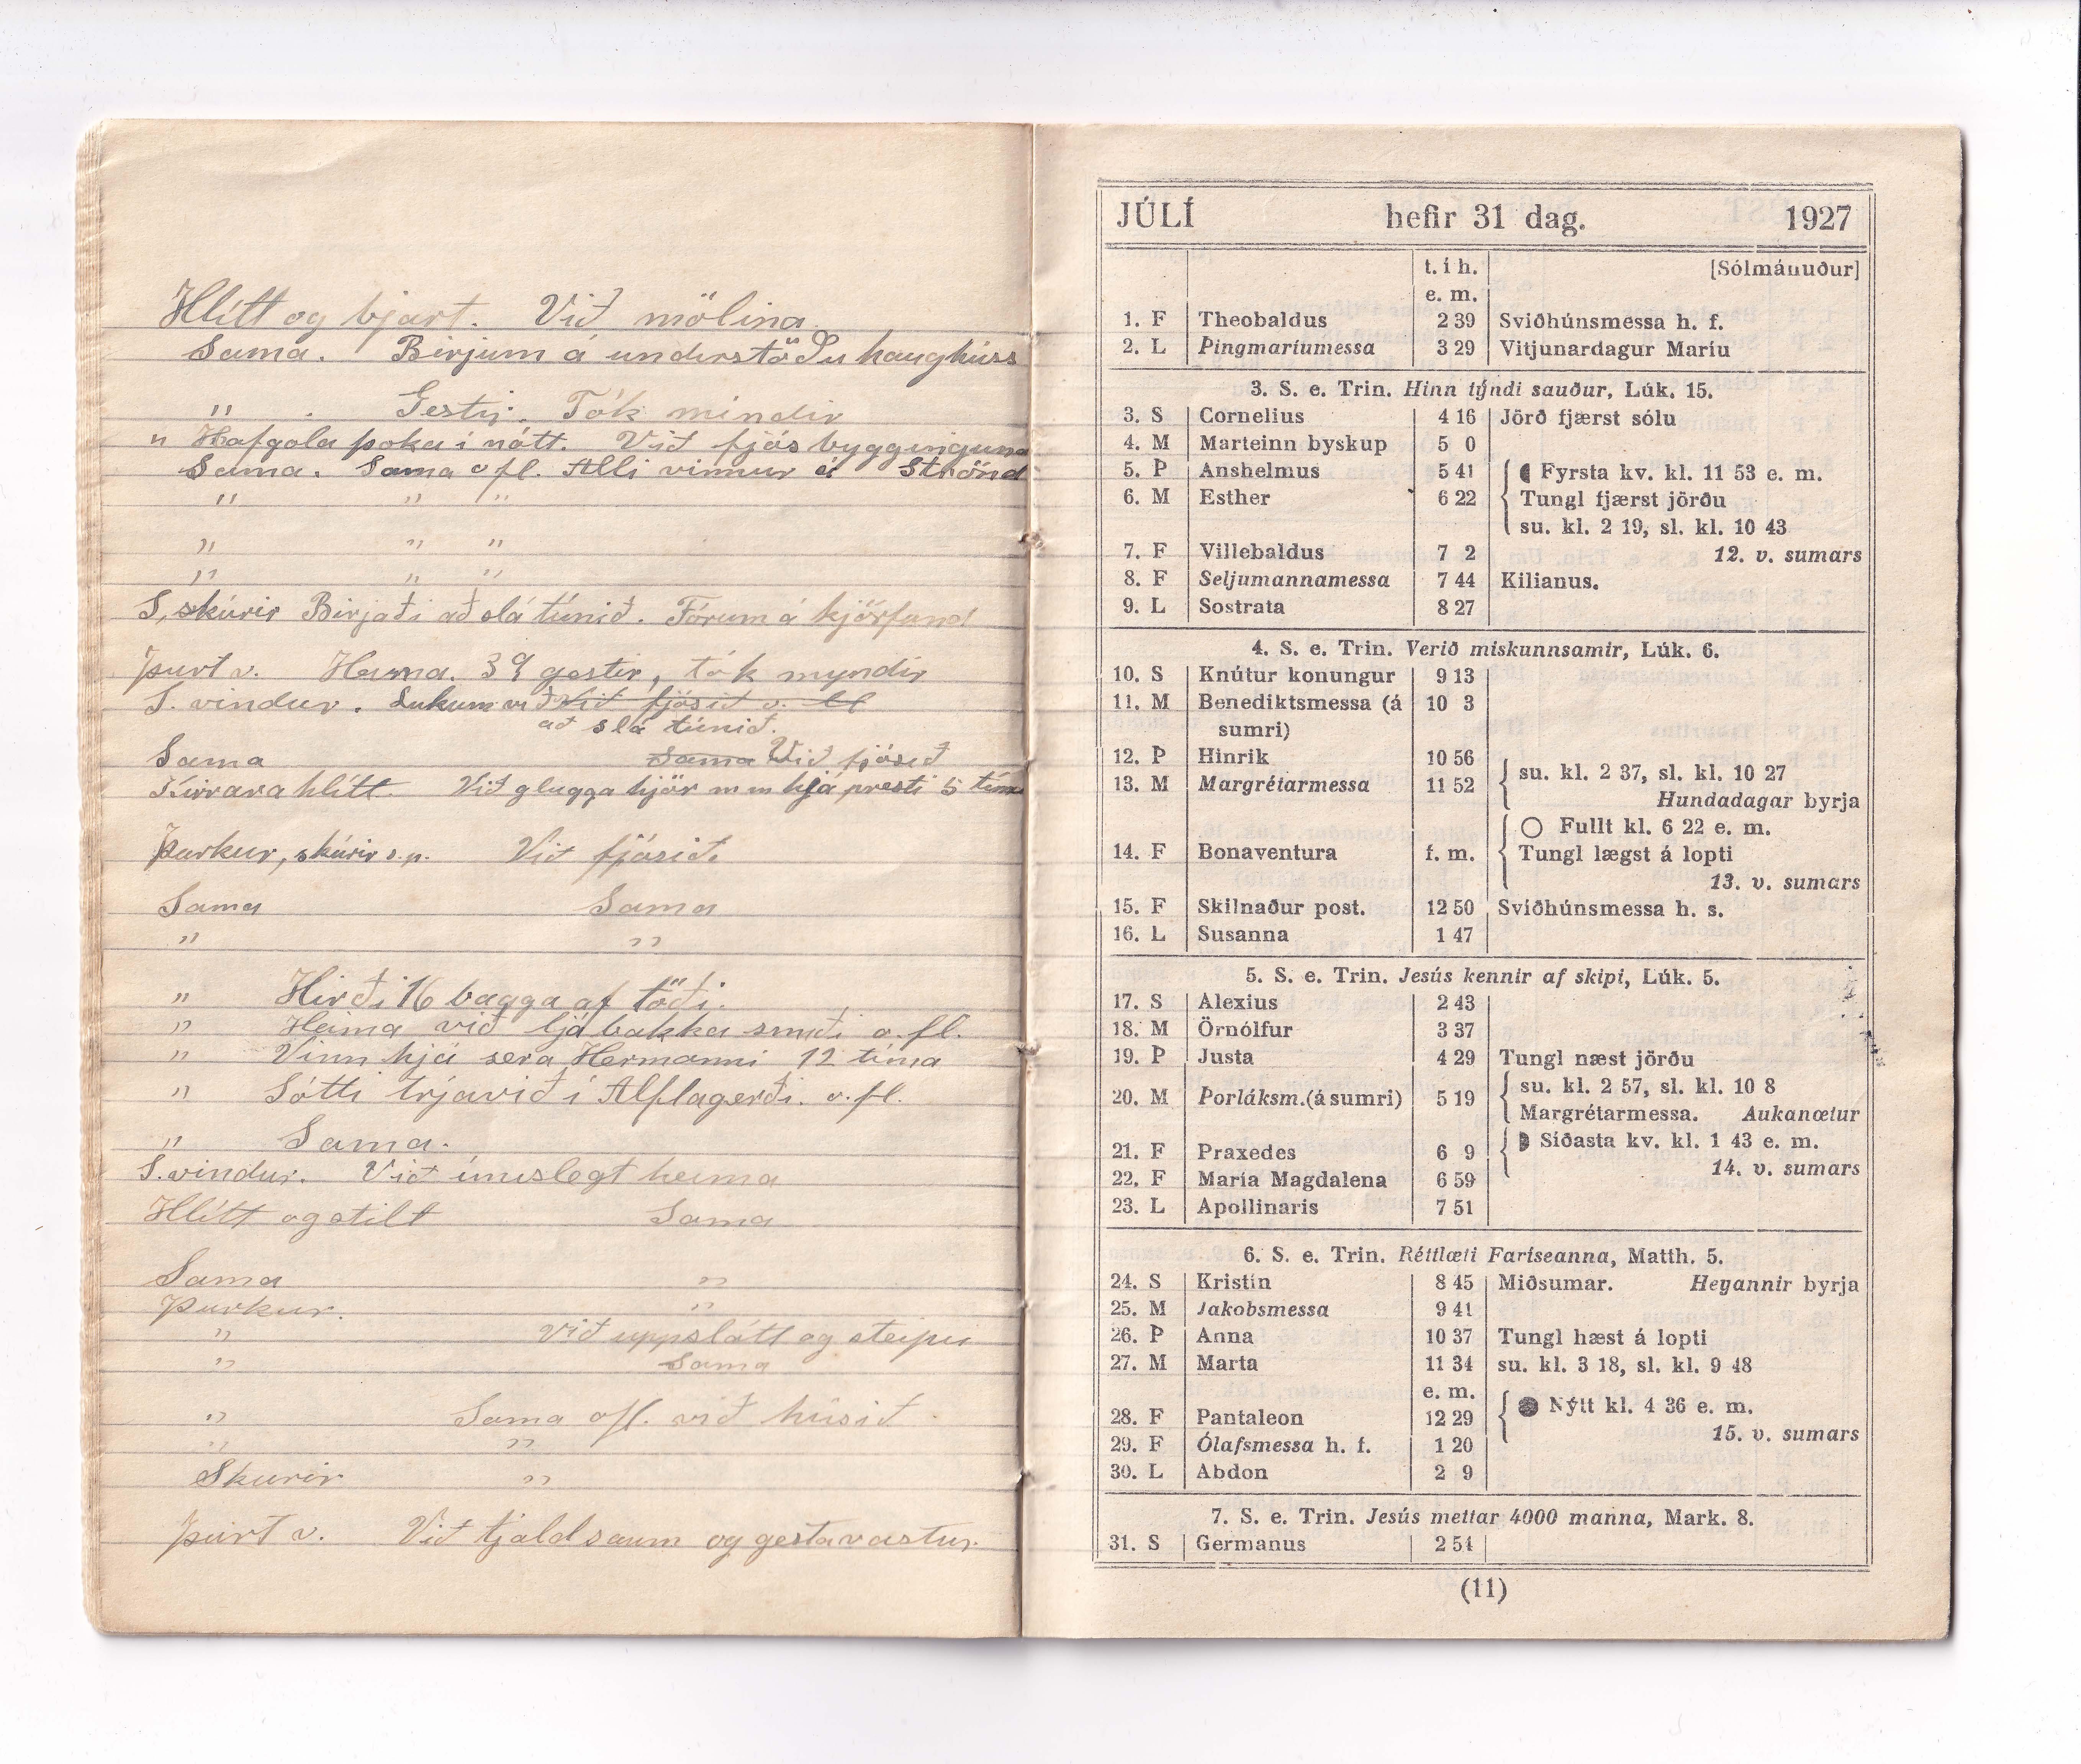 Hlítt og bjart. Við mölina
Sama. Birjum á understöðu haughúss
" . Gestir. Tók mindir
" Hafgola þoka í nótt. Við fjós bygginguna
Sama. Sama o fl. Alli vinnur á Strönd
" " "
" " "
" " "
S, skúrir Birjaði að slá túnið. Fórum á kjörfund
þurt v. Heima. 39 gestir, tók myndir
S. vindur. Lukum við Við fjósið v.
að slá túnið.
Sama Sama Við fjósið
Kirrara hlítt Við glugga hjör m m hjá presti 5 tíma
Þurkur, skúrir s.p. Við fjósið.
Sama Sama
" "
" Hirði 16 bagga af töði.
" Heima við ljábakka smíði o.fl.
" Vinn hjá sera Hermanni 12 tíma
" Sótti trjávið í Alflagerði. o.fl.
" Sama.
S. vindur. Við ímislegt heima
Hlítt og stilt Sama
Sama "
Þurkur. "
" Við uppslátt og steipu
" Sama
" Sama ofl. við húsið
" "
Skurir "
þurt v. Við tjaldsaum og gestavastur.
JÚLÍ hefir 31 dag. 1927
t. í h. [Sólmánuður]
e. m.
1. F Theobaldus 2 39 Sviðhúnsmessa h. f.
2. L Þingmaríumessa 3 29 Vitjunardagur Maríu
3. S. e. Trin. Hinn týndi sauður, Lúk. 15.
3. S Cornelius 4 16 Jörð fjærst sólu
4. M Marteinn byskup 5 0
5. Þ Anshelmus 5 41 Fyrsta kv. kl. 11 53 e. m.
6. M Esther 6 22 Tungl fjærst jörðu
su. kl. 2 19, sl. kl. 10 43
7. F Villebaldus 7 2 12. v. sumars
8. F Seljumannamessa 7 44 Kilianus.
9. L Sostrata 8 27
4. S. e. Trin. Verið miskunnsamir, Lúk. 6.
10. S Knútur konungur 9 13
11. M Benediktsmessa (á 10 3
sumri)
12. Þ Hinrik 10 56 su. kl. 2 37, sl. kl. 10 27
13. M Margrétarmessa 11 52 Hundadagar byrja
Fullt kl. 6 22 e. m.
14. F Bonaventura f. m. Tungl lægst á lopti
13. v. sumars
15. F Skilnaður post. 12 50 Sviðhúnsmessa h. s.
16. L Susanna 1 47
5. S. e. Trin. Jesús kennir af skipi, Lúk. 5.
17. S Alexius 2 43
18. M Örnólfur 3 37
19. Þ Justa 4 29 Tungl næst jörðu
su. kl. 2 57, sl. kl. 10 8
20. M Þorláksm.(á sumri) 5 19 Margrétarmessa. Aukanætur
Síðasta kv. kl. 1 43 e. m.
21. F Praxedes 6 9 14. v. sumars
22. F María Magdalena 6 59
23. L Apollinaris 7 51
6. S. e. Trin. Réttlæti Faríseanna, Matth. 5.
24. S Kristín 8 45 Miðsumar. Heyannir byrja
25. M Jakobsmessa 9 41
26. Þ Anna 10 37 Tungl hæst á lopti
27. M Marta 11 34 su. kl. 3 18, sl. kl. 9 48
e. m. Nýtt kl. 4 36 e. m.
28. F Pantaleon 12 29 15. v. sumars
29. F Ólafsmessa h. f. 1 20
30. L Abdon 2 9
7. S. e. Trin. Jesús mettar 4000 manna, Mark. 8.
31. S Germanus 2 54
(11)